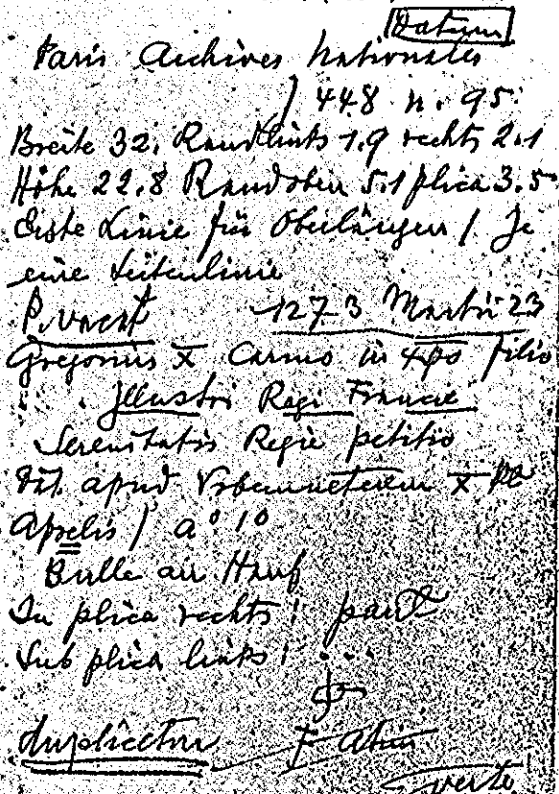 Datum
Paris Archives Nationales
J 448 n. 95
Breite 32. Rand links 1.9 rechts 2.1
Höhe 22.8 Rand oben 5.1 plica 3.5
Erste Linie für Oberlängen / Je
eine Seitenlinie
P. vacat 1273 Martii 23
Gregorius X Carmo in xpo filio
. . Illustri Regi Francie
Serenitatis Regie petitio
Dat. apud Urbemveterem X
Aprelis / a° 1°
Bulle an Hanf
In plica rechts :
Sub plica links : . . .
duplicetur
verte